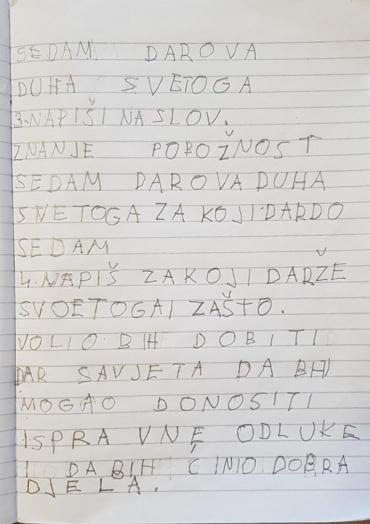 SEDAM DAROVA
DUHA SVETOGA
3. NAPIŠI NASLOV.
ZNANJE POBOŽNOST
SEDAM DAROVA DUHA
SVETOGA ZA KOJI DAR DO
SEDAM
4. NAPIŠ ZA KOJI DAR ŽE
SVOETOGA I ZAŠTO.
VOLIO BIH DOBITI
DAR SAVJETA DA BHI
MOGAO DONOSITI
ISPRAVNE ODLUKE
I DA BIH ĆINIO DOBRA
DJELA.